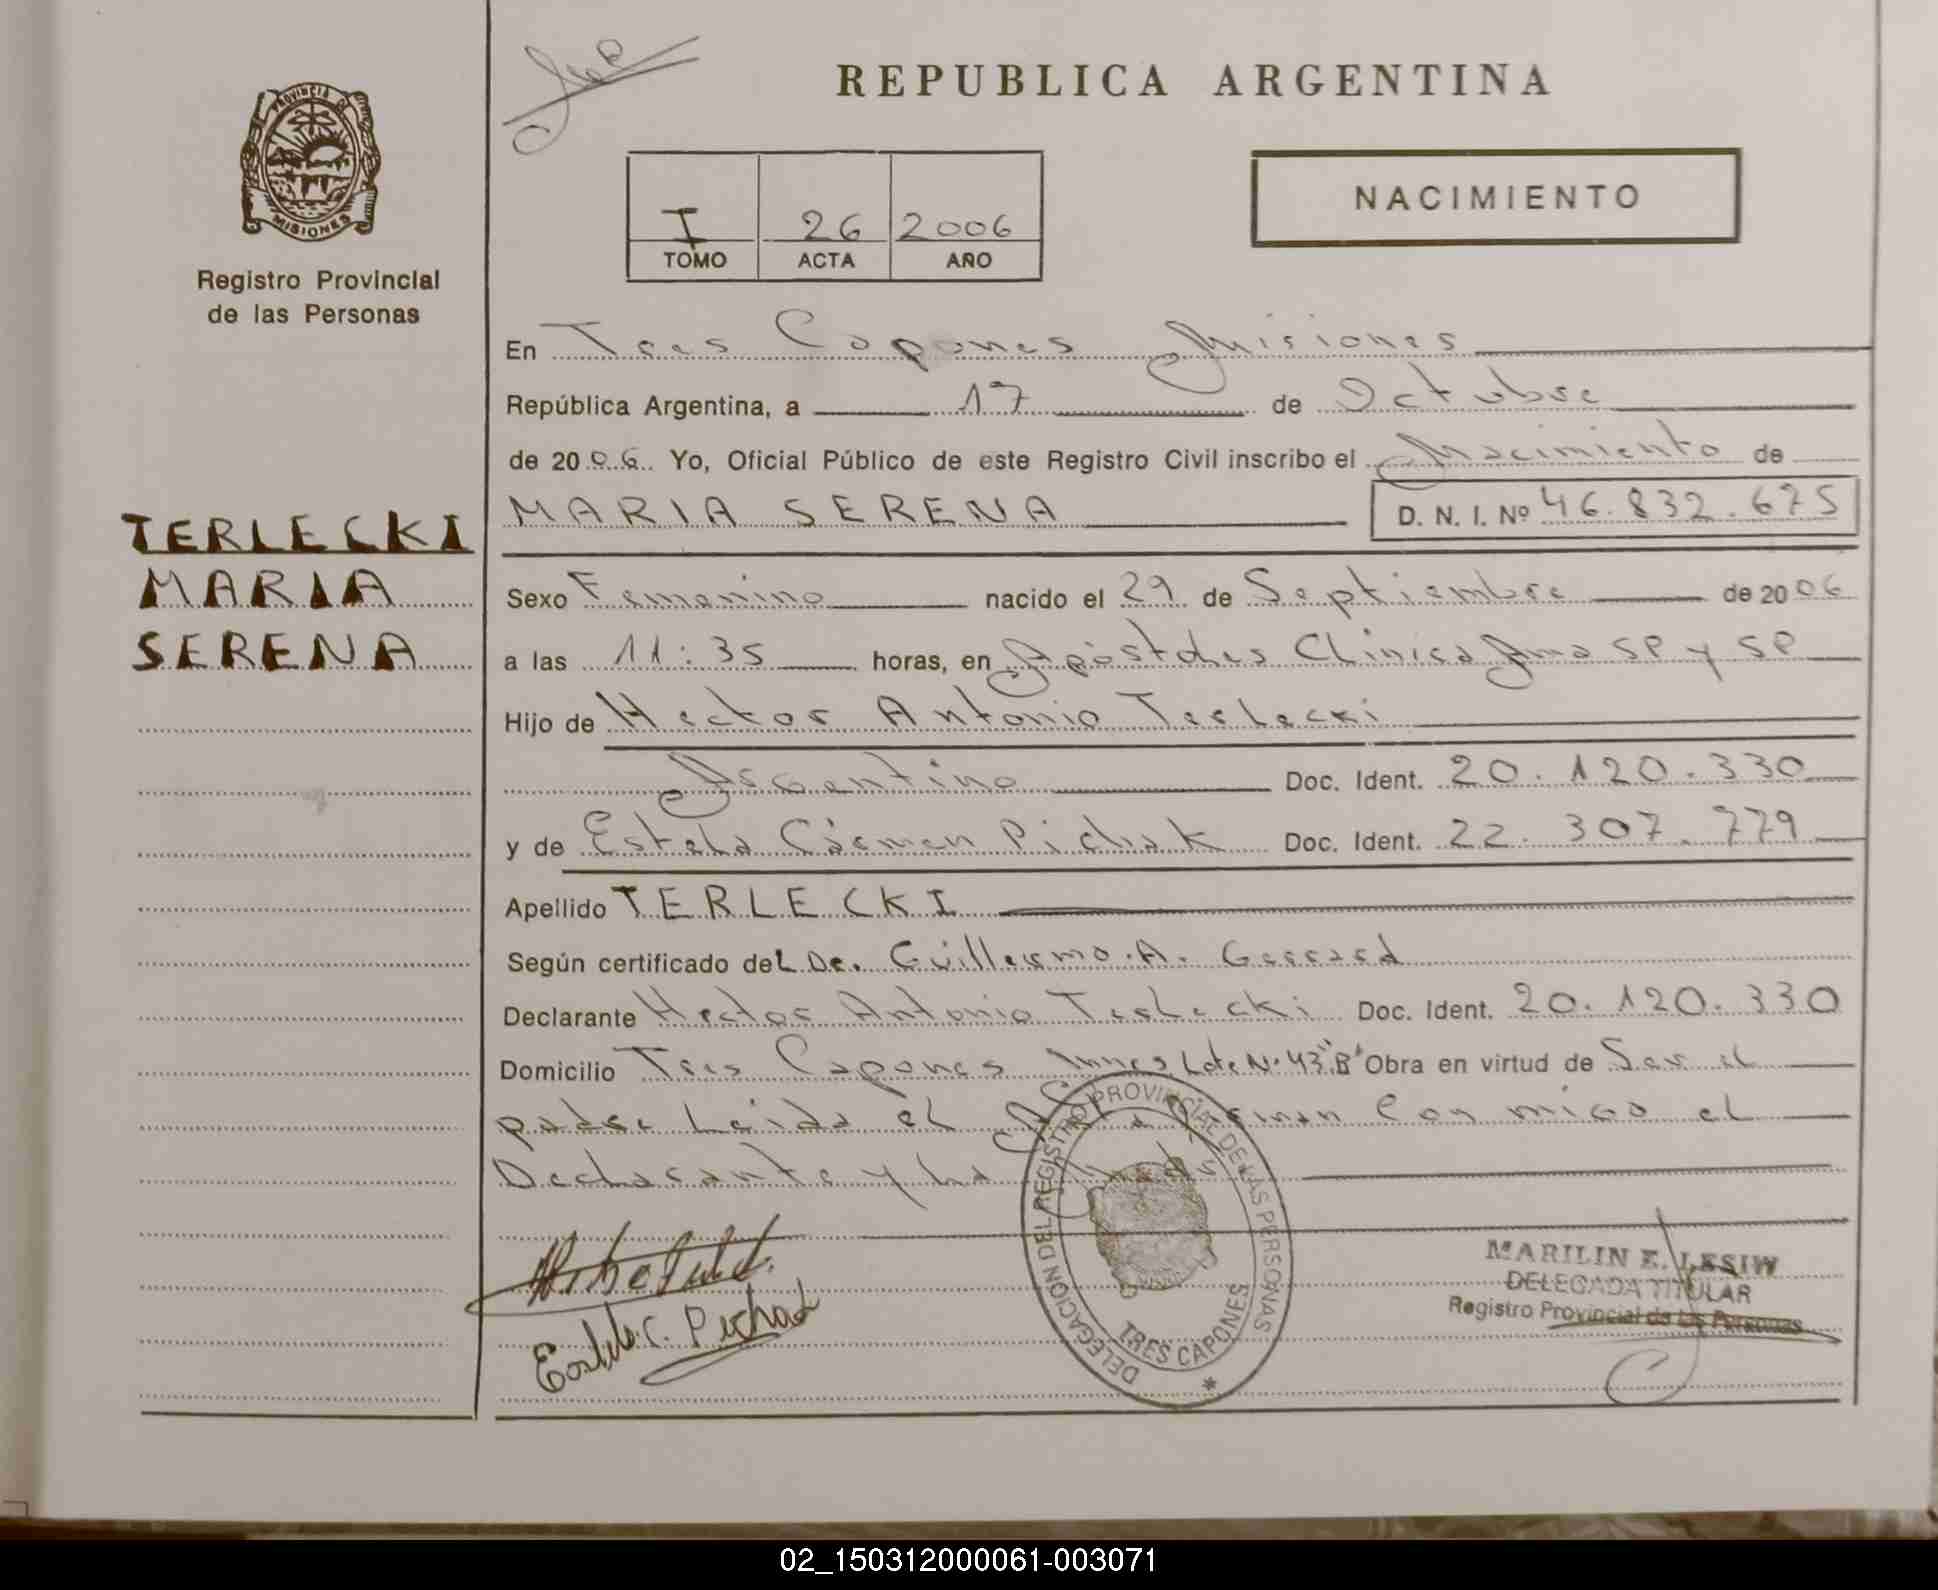 REPUBLICA ARGENTINA
PROVINCIA D
MISIONES
Registro Provincial
de las Personas
I 26 2006
TOMO ACTA AÑO
NACIMIENTO
En Tres Capones Misiones
República Argentina, a 17 de Octubre
de 2006. Yo, Oficial Público de este Registro Civil inscribo el Nacimiento de
MARIA SERENA D. N. I. Nº 46.832.675
TERLECKI
MARIA
SERENA
Sexo Femenino nacido el 29 de Septiembre de 2006
a las 11:35 horas, en Apóstoles Clinica SP y SP
Hijo de Hector Antonio Terlecki
Argentino Doc. Ident. 20.120.330
y de Estela Cármen Pichak Doc. Ident. 22.307.779
Apellido TERLECKI
Según certificado deL Dr. Guillermo A. Gerrard
Declarante Hector Antonio Terlecki Doc. Ident. 20.120.330
Domicilio Tres Capones Lote Nº 43"B" Obra en virtud de Ser el
padre Leida el Acta Firman Con migo el
Declarante y La
Estela C. Pichak
DELEGACION DEL REGISTRO PROVINCIAL DE LAS PERSONAS
TRES CAPONES
*
MARILIN E. LESIW
DELEGADA TITULAR
Registro Provincial de las Personas
02_150312000061-003071